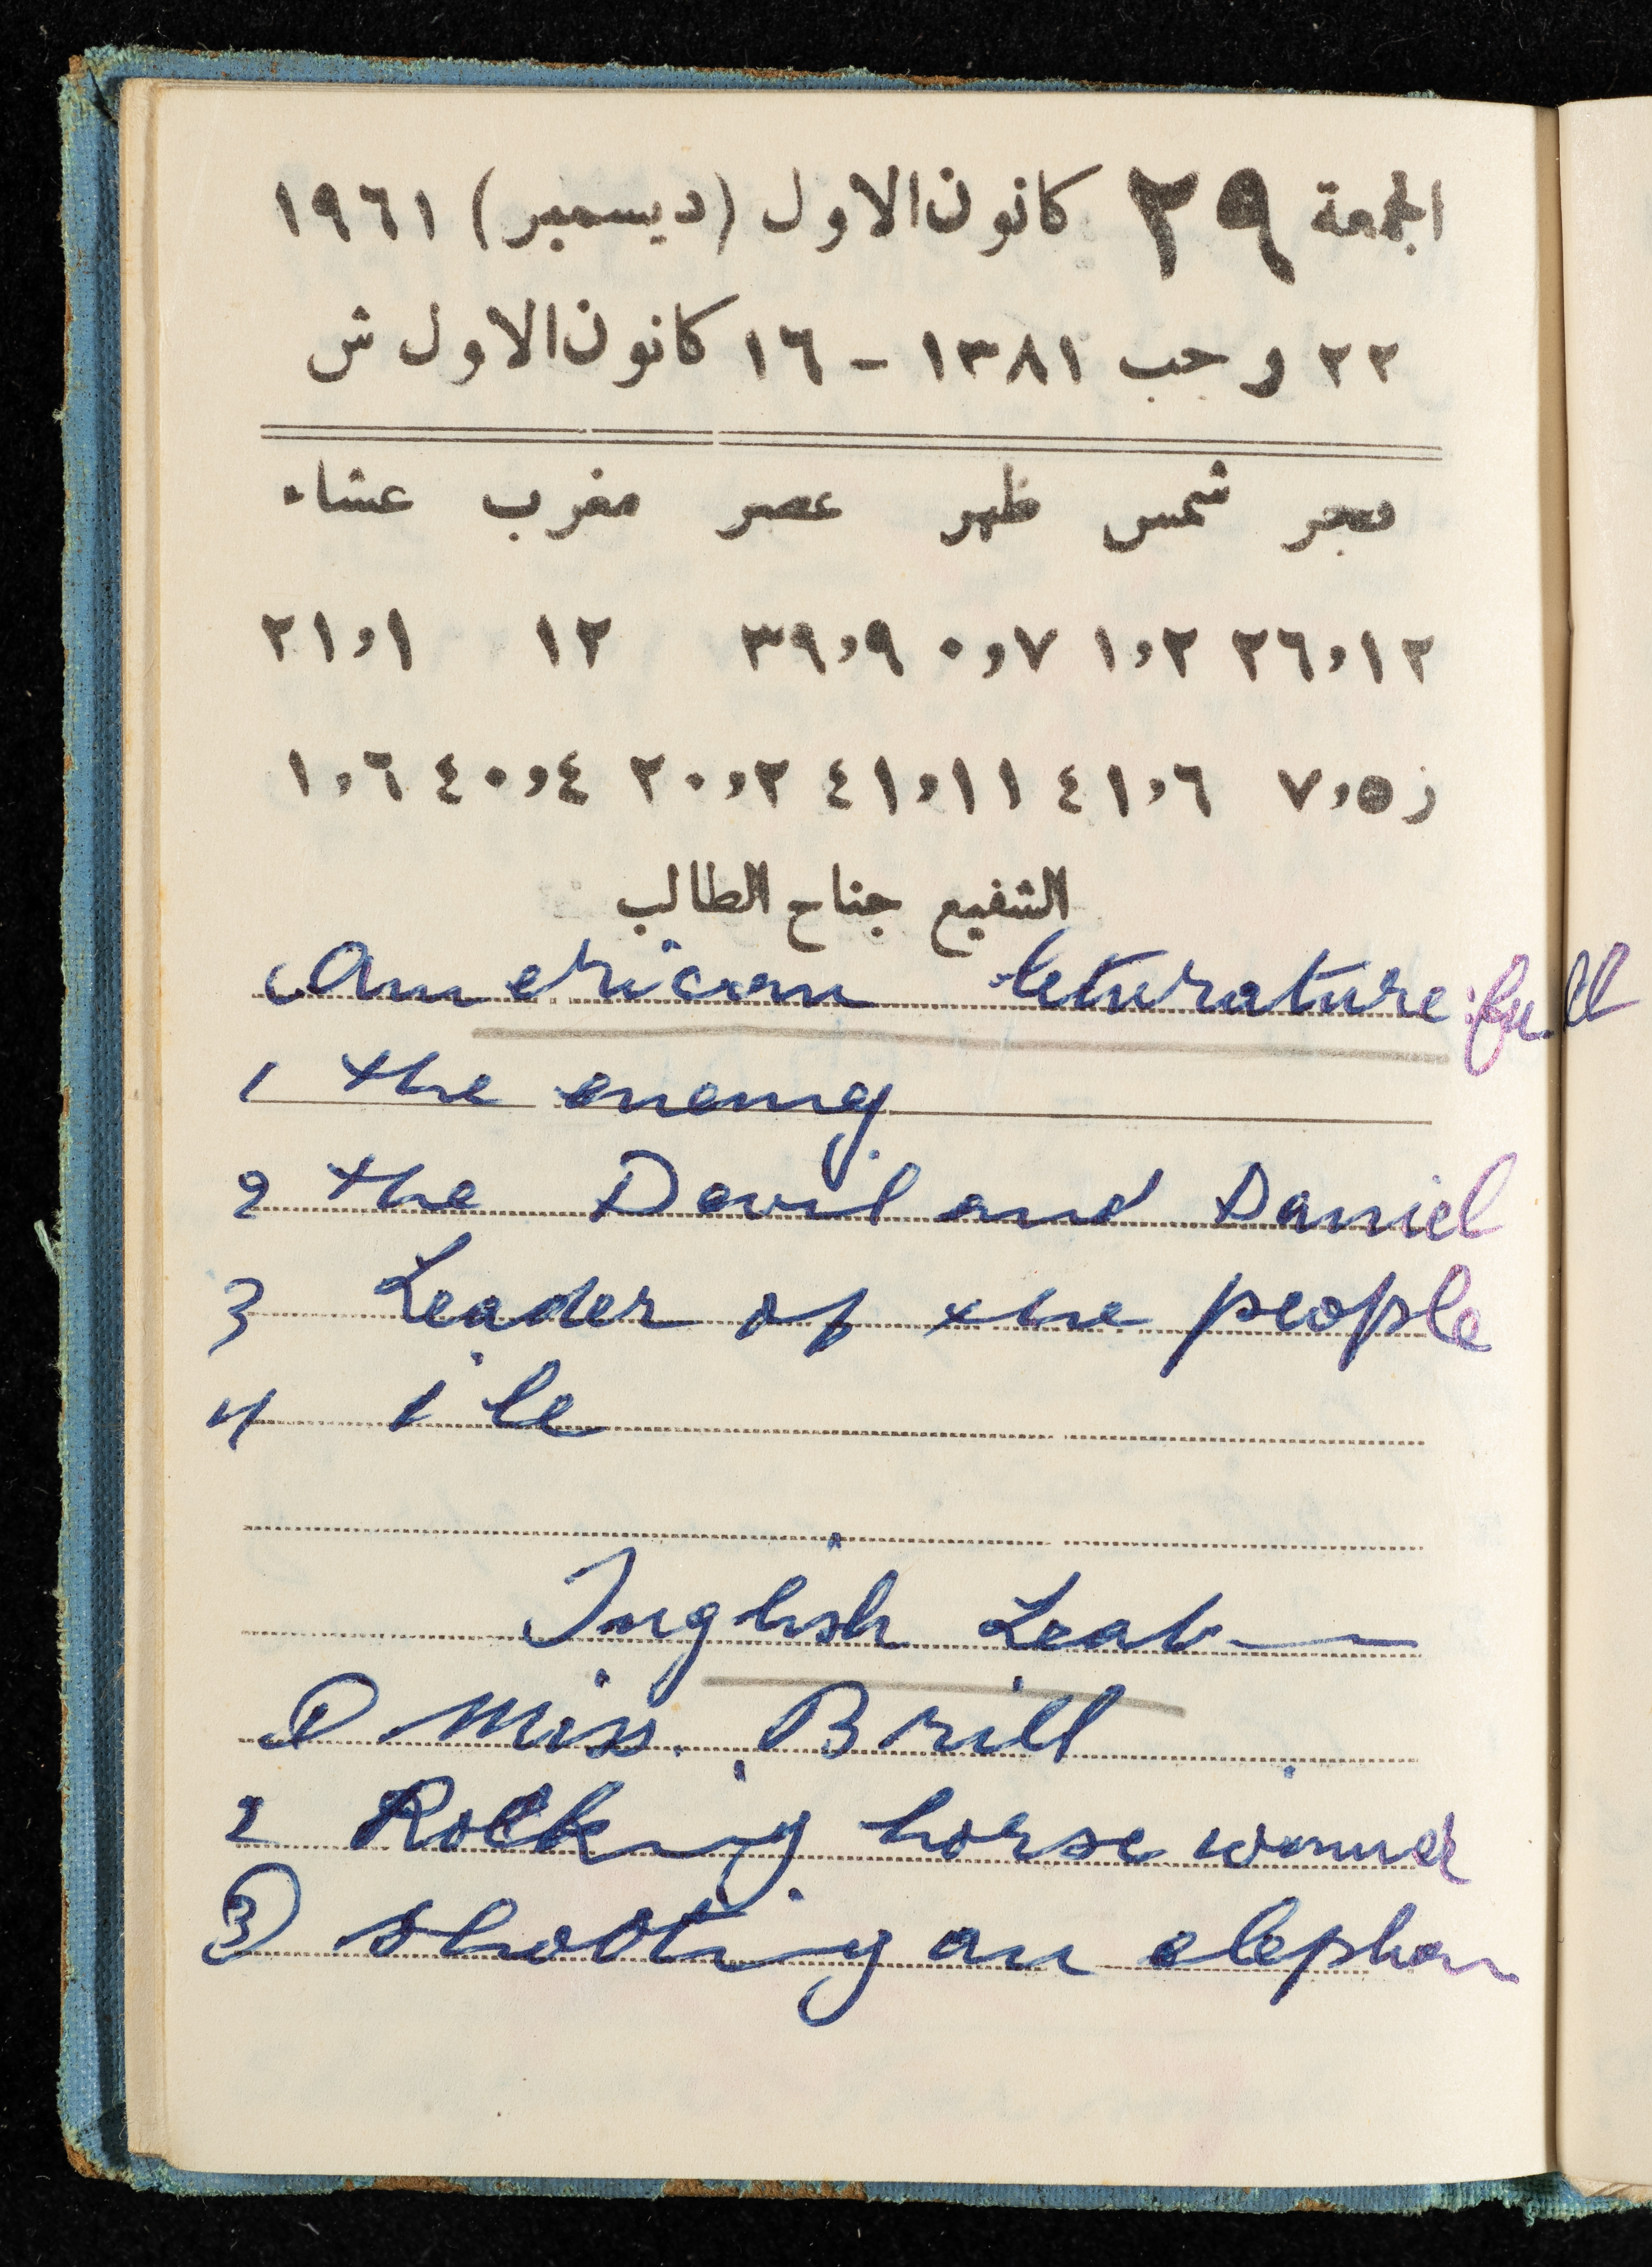 الجمعة ٢٩ كانون الاول (ديسمبر) ١٩٦١
٢٢ رجب ١٣٨١ - ١٦ كانون الاول ش
فجر شمس ظهر عصر مغرب عشاء
١٢,٢٦ ٢,١ ٧,٠ ٩,٣٩ ١٢ ١,٢١
ز ٥,٧ ٦,٤١ ١١,٤١ ٢,٢٠ ٤,٤٠ ٦,١
الشفيع جناح الطالب
American leturature full
1 the enemy
2 the Devil and Daniel
3 Leader of the people
4 ile
Inglish
① Miss. Brill
2 Rocking horse winner
③ shooting an elephan